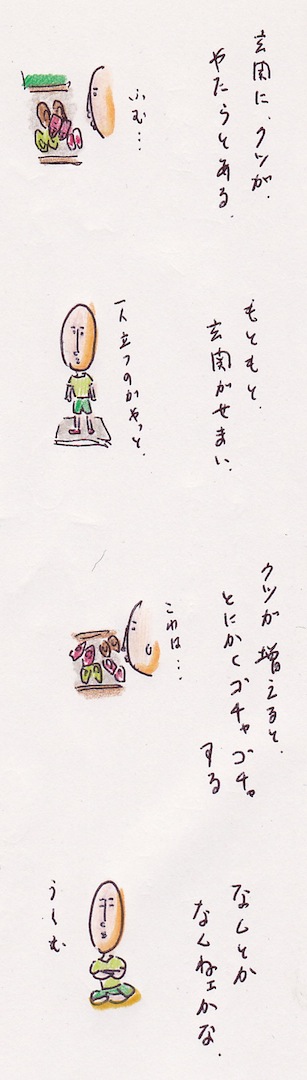 玄関に、クツが、
やたらとある。
ふむ…
もともと、
玄関がせまい。
一人立つのがやっと。
クツが増えると、
とにかくゴチャゴチャ
する
これは…
なんとか
なんねェかな。
うーむ